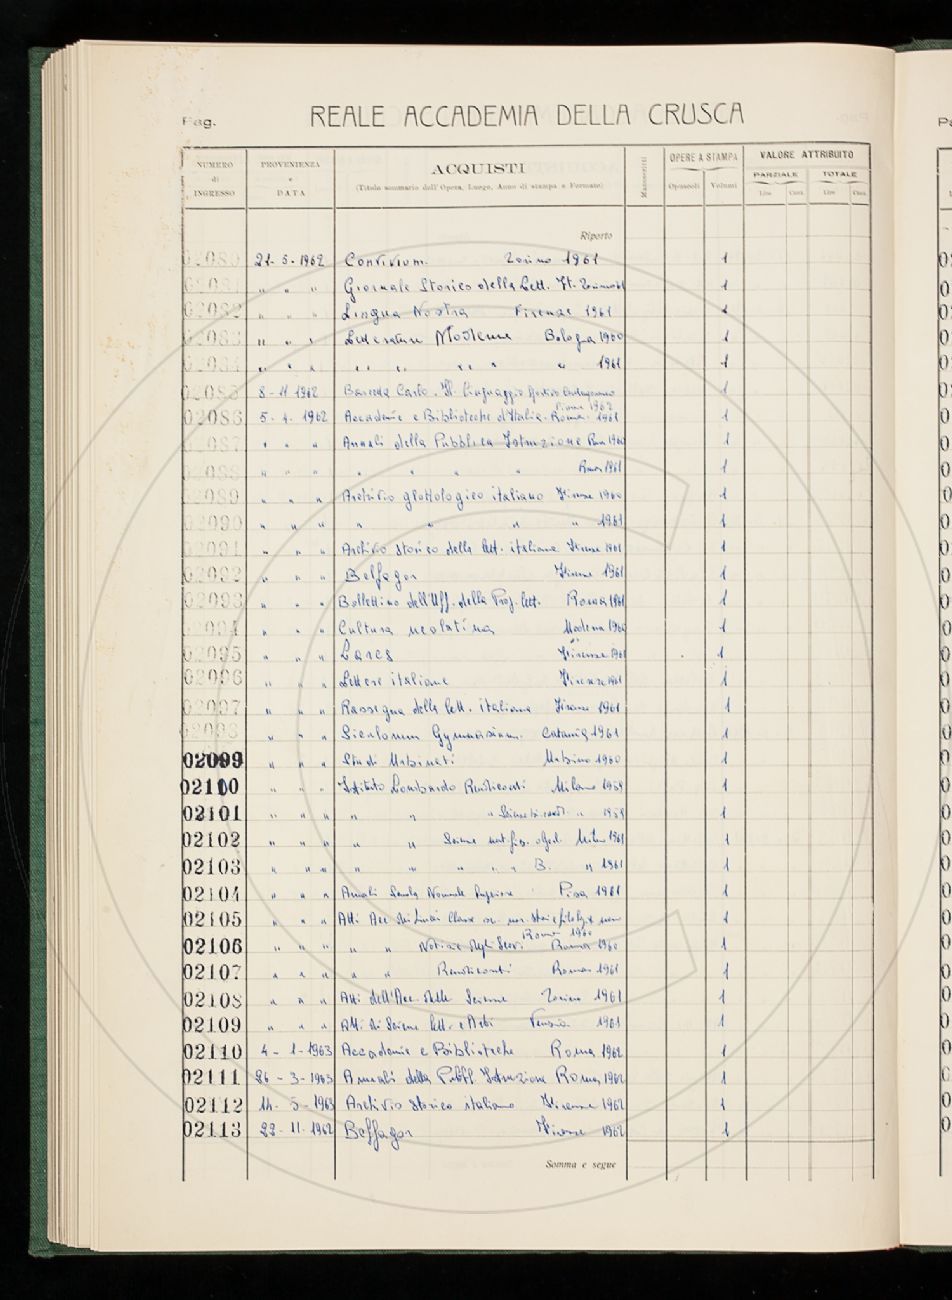 Pag.
REALE ACCADEMIA DELLA CRUSCA
NUMERO di INGRESSO
PROVENIENZA e DATA
ACQUISTI
(Titolo sommario dell'Opera, Luogo, Anno di stampa e Formato)
Manoscritti
OPERE A STAMPA
Opuscoli Volumi
VALORE ATTRIBUITO
PARZIALE TOTALE
Lire Cent. Lire Cent.
Riporto
02080 21-5-1962 Convivium. Torino 1961 1
02081 " " " Giornale Storico della Lett. It. 1
02082 " " " Lingua Nostra Firenze 1961 1
02083 " " " Letterature Moderne Bologna 1960 1
02084 " " " " " " " " 1961 1
02085 8-11 1962 Carlo. Il linguaggio 1
1962
02086 5-4-1962 Accademie e Biblioteche d'Italia. Roma 1961 1
02087 " " " Annali della Pubblica Istruzione Roma 1960 1
02088 " " " " " " " Roma 1961 1
02089 " " " Archivio glottologico italiano Firenze 1960 1
02090 " " " " " " " 1961 1
02091 " " " Archivio storico della lett. italiana Firenze 1961 1
02092 " " " Belfagor Firenze 1961 1
02093 " " " Bollettino dell'Uff. della Prop. lett. Roma 1961 1
02094 " " " Cultura neolatina Modena 1960 1
02095 " " " Lares Firenze 1961 1
02096 " " " Lettere italiane Firenze 1961 1
02097 " " " Rassegna della lett. italiana Firenze 1961 1
02098 " " " Siculorum Gymnasium. Catania 1961 1
02099 " " " Studi Urbinati Urbino 1960 1
02110 " " " Istituto Lombardo Rendiconti Milano 1959 1
02101 " " " " " " " 1959 1
02102 " " " " " Scienze mat. fis. Milano 1961 1
02103 " " " " " " " " B. " 1961 1
02104 " " " Annali Scuola Normale Superiore Pisa 1961 1
02105 " " " Atti Acc. dei Lincei Classe sc. mor. 1
Roma 1960
02106 " " " " " Notizie degli Scavi Roma 1960 1
02107 " " " " " Rendiconti Roma 1961 1
02108 " " " Atti dell'Acc. delle Scienze Torino 1961 1
02109 " " " Atti di Scienze lett. e Arti Venezia 1961 1
02110 4-1-1963 Accademie e Biblioteche Roma 1962 1
02111 26-3-1963 Annali della Pubbl. Istruzione Roma 1962 1
02112 14-5-1963 Archivio storico italiano Firenze 1962 1
02113 22-11-1962 Belfagor Firenze 1962 1
Somma e segue